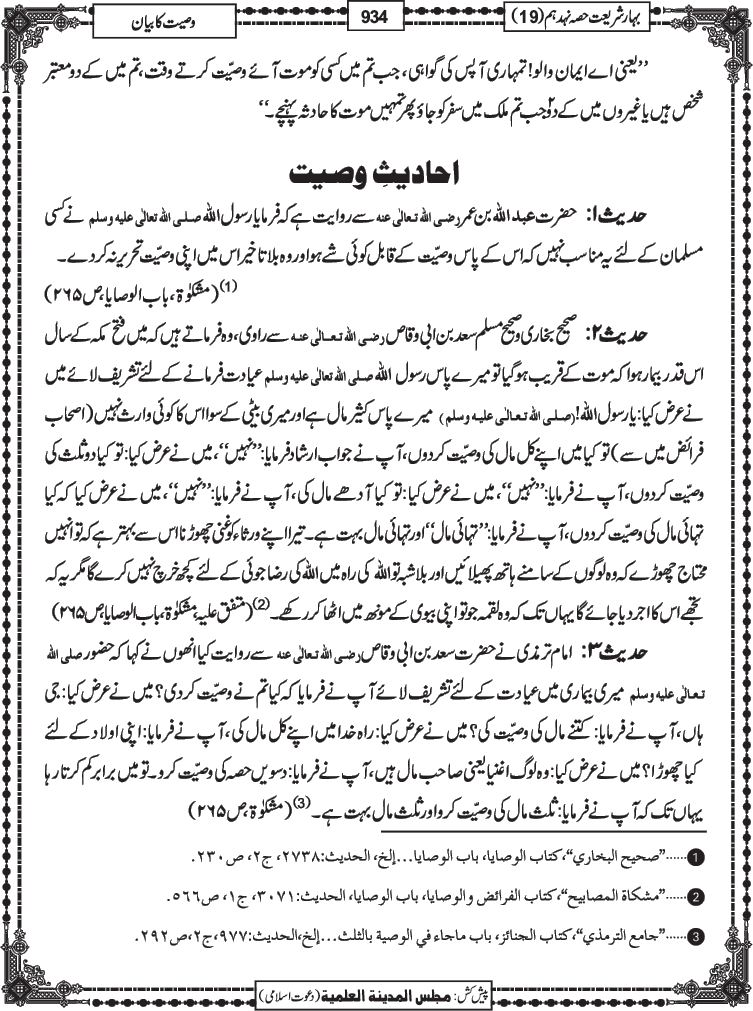 بہارِ شریعت حصہ نہدہم (19)
934
وصیت کا بیان
’’یعنی اے ایمان والو! تمہاری آپس کی گواہی، جب تم میں کسی کو موت آئے وصیّت کرتے وقت، تم میں کے دو معتبر
شخص ہیں یا غیروں میں کے دو جب تم ملک میں سفر کو جاؤ پھر تمہیں موت کا حادثہ پہنچے۔‘‘
احادیثِ وصیت
حدیث ۱: حضرت عبد اللہ بن عمر رضی اللہ تعالٰی عنہ سے روایت ہے کہ فرمایا رسول اللہ صلی اللہ تعالٰی علیہ وسلم نے کسی
مسلمان کے لئے یہ مناسب نہیں کہ اس کے پاس وصیّت کے قابل کوئی شے ہو اور وہ بلا تاخیر اس میں اپنی وصیّت تحریر نہ کردے۔
(1) (مشکوٰۃ، باب الوصایا، ص ۲۶۵)
حدیث ۲: صحیح بخاری و صحیح مسلم سعد بن ابی وقاص رضی اللہ تعالٰی عنہ سے راوی، وہ فرماتے ہیں کہ میں فتح مکہ کے سال
اس قدر بیمار ہوا کہ موت کے قریب ہوگیا تو میرے پاس رسول اللہ صلی اللہ تعالٰی علیہ وسلم عیادت فرمانے کے لئے تشریف لائے میں
نے عرض کیا: یارسول اللہ! (صلی اللہ تعالٰی علیہ وسلم) میرے پاس کثیر مال ہے اور میری بیٹی کے سوا اس کا کوئی وارث نہیں (اصحاب
فرائض میں سے) تو کیا میں اپنے کل مال کی وصیّت کردوں، آپ نے جواب ارشاد فرمایا: ’’نہیں‘‘، میں نے عرض کیا: تو کیا دو ثلث کی
وصیّت کردوں، آپ نے فرمایا: ’’نہیں‘‘، میں نے عرض کیا: تو کیا آدھے مال کی، آپ نے فرمایا: ’’نہیں‘‘، میں نے عرض کیا کہ کیا
تہائی مال کی وصیّت کردوں، آپ نے فرمایا: ’’تہائی مال‘‘ اور تہائی مال بہت ہے۔ تیرا اپنے ورثاء کو غنی چھوڑنا اس سے بہتر ہے کہ تو انہیں
محتاج چھوڑے کہ وہ لوگوں کے سامنے ہاتھ پھیلائیں اور بلا شبہ تو اللہ کی راہ میں اللہ کی رضا جوئی کے لئے کچھ خرچ نہیں کرے گا مگر یہ کہ
تجھے اس کا اجر دیا جائے گا یہاں تک کہ وہ لقمہ جو تو اپنی بیوی کے مونھ میں اٹھا کر رکھے۔(2) (متفق علیہ، مشکوٰۃ، باب الوصایا، ص ۲۶۵)
حدیث ۳: امام ترمذی نے حضرت سعد بن ابی وقاص رضی اللہ تعالٰی عنہ سے روایت کیا انھوں نے کہا کہ حضور صلی اللہ
تعالٰی علیہ وسلم میری بیماری میں عیادت کے لئے تشریف لائے آپ نے فرمایا کہ کیا تم نے وصیّت کردی؟ میں نے عرض کیا: جی
ہاں، آپ نے فرمایا: کتنے مال کی وصیّت کی؟ میں نے عرض کیا: راہ خدا میں اپنے کل مال کی، آپ نے فرمایا: اپنی اولاد کے لئے
کیا چھوڑا؟ میں نے عرض کیا: وہ لوگ اغنیا یعنی صاحب مال ہیں، آپ نے فرمایا: دسویں حصہ کی وصیّت کرو۔ تو میں برابر کم کرتا رہا
یہاں تک کہ آپ نے فرمایا: ثلث مال کی وصیّت کرو اور ثلث مال بہت ہے۔(3) (مشکوٰۃ، ص ۲۶۵)
1......”صحيح البخاري“، كتاب الوصايا، باب الوصايا...إلخ، الحديث:٢٧٣٨، ج٢، ص٢٣٠.
2......”مشكاة المصابيح“، كتاب الفرائض والوصايا، باب الوصايا، الحديث:٣٠٧١، ج١، ص٥٦٦.
3......”جامع الترمذي“، كتاب الجنائز، باب ماجاء في الوصية بالثلث...إلخ، الحديث:٩٧٧، ج٢، ص٢٩٢.
پیش کش: مجلس المدينة العلمية (دعوت اسلامی)